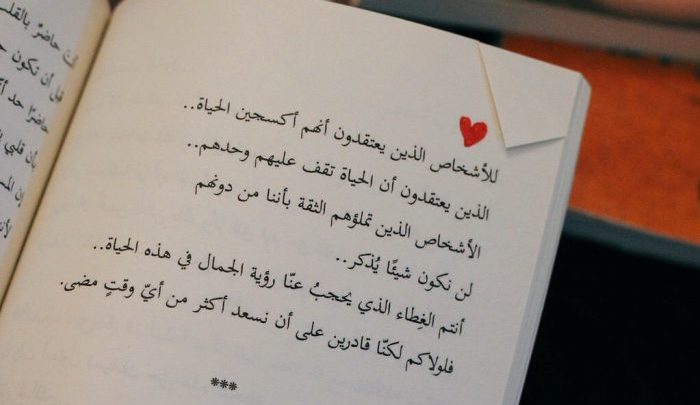 للأشخاص الذين يعتقدون أنهم أكسجين الحياة..
الذين يعتقدون أن الحياة تقف عليهم وحدهم..
الأشخاص الذين تملؤهم الثقة بأننا من دونهم
لن نكون شيئًا يُذكر..
أنتم الغِطاء الذي يحجبُ عنّا رؤية الجمال في هذه الحياة..
فلولاكم لكنّا قادرين على أن نسعد أكثر من أيّ وقتٍ مضى.
***
حاضرٌ بالقلب
قبل أن تكون